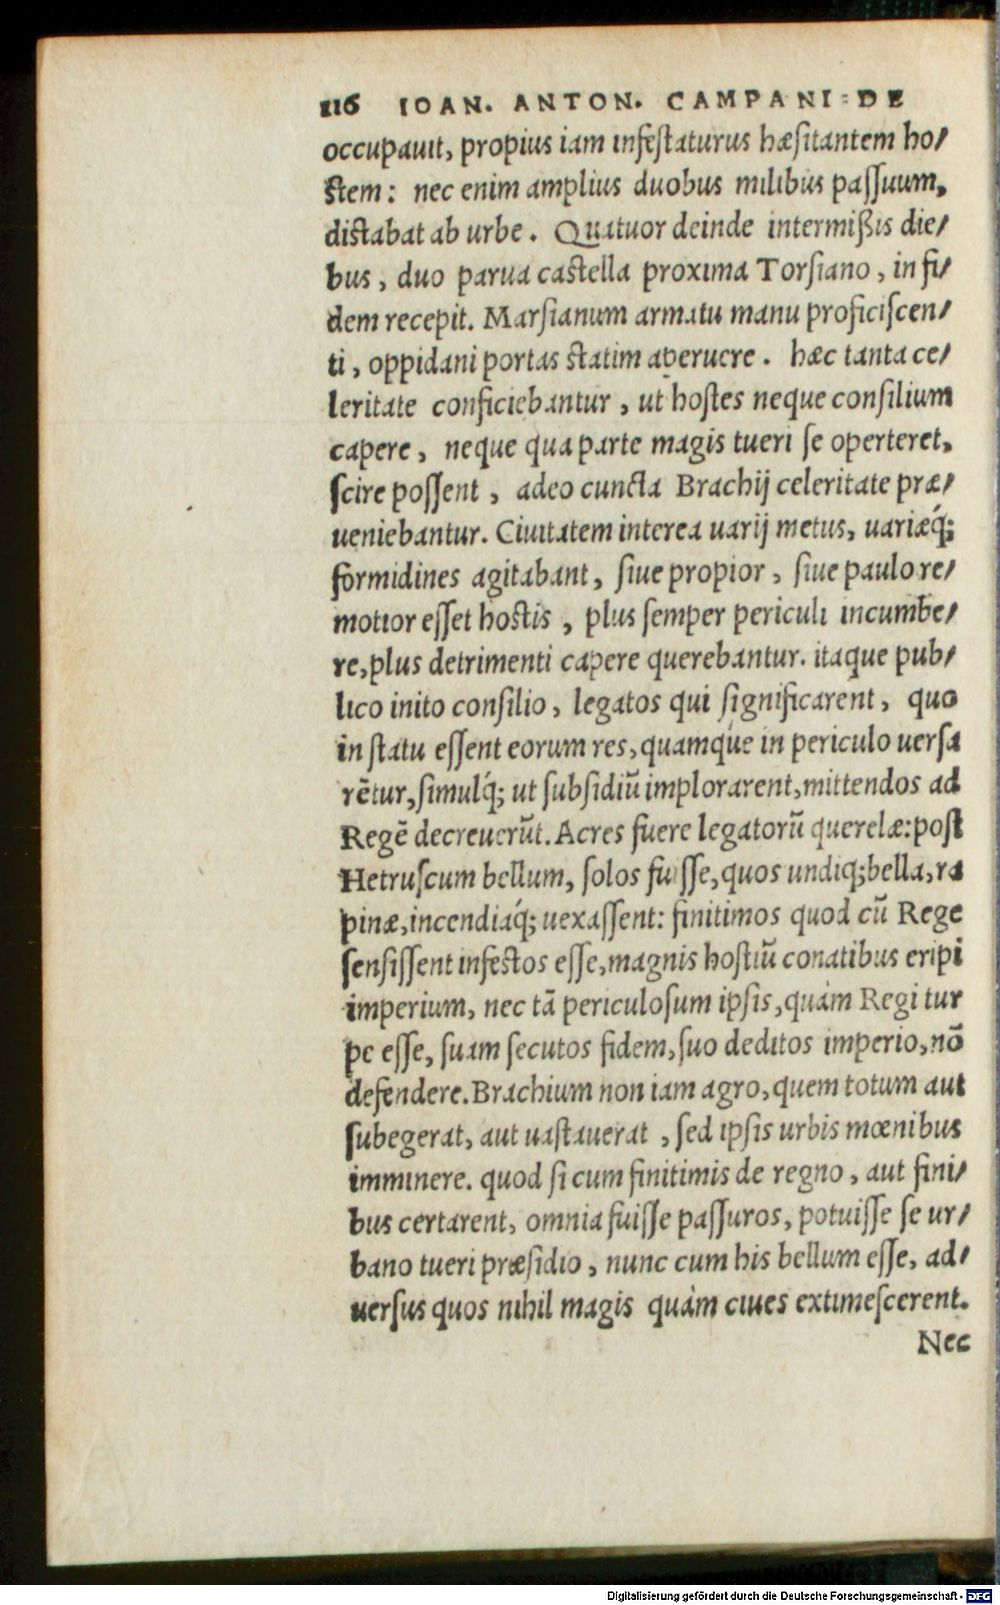 116 IOAN. ANTON. CAMPANI DE
occupauit, propius iam infestaturus hæsitantem ho/
stem: nec enim amplius duobus milibus passuum,
distabat ab urbe. Quatuor deinde intermißis die/
bus, duo parua castella proxima Torsiano, in fi/
dem recepit. Marsianum armatu manu proficiscen/
ti, oppidani portas statim aperuere. hæc tanta ce/
leritate conficiebantur, ut hostes neque consilium
capere, neque qua parte magis tueri se operteret,
scire possent, adeo cuncta Brachij celeritate præ/
ueniebantur. Ciuitatem interea uarij metus, uariæq́;
formidines agitabant, siue propior, siue paulo re/
motior esset hostis, plus semper periculi incumbe/
re, plus detrimenti capere querebantur. itaque pub/
lico inito consilio, legatos qui significarent, quo
in statu essent eorum res, quamque in periculo uersa
rētur, simulq́; ut subsidiū implorarent, mittendos ad
Regē decreuerūt. Acres fuere legatorū querelæ: post
Hetruscum bellum, solos fuisse, quos undiq; bella, ra
pinæ, incendiaq́; uexassent: finitimos quod cū Rege
sensissent infestos esse, magnis hostiū conatibus eripi
imperium, nec tā periculosum ipsis, quàm Regi tur
pe esse, suam secutos fidem, suo deditos imperio, nō
defendere. Brachium non iam agro, quem totum aut
subegerat, aut uastauerat, sed ipsis urbis mœnibus
imminere. quod si cum finitimis de regno, aut fini/
bus certarent, omnia fuisse passuros, potuisse se ur/
bano tueri præsidio, nunc cum his bellum esse, ad/
uersus quos nihil magis quàm ciues extimescerent.
Nec
Digitalisierung gefördert durch die Deutsche Forschungsgemeinschaft - DFG